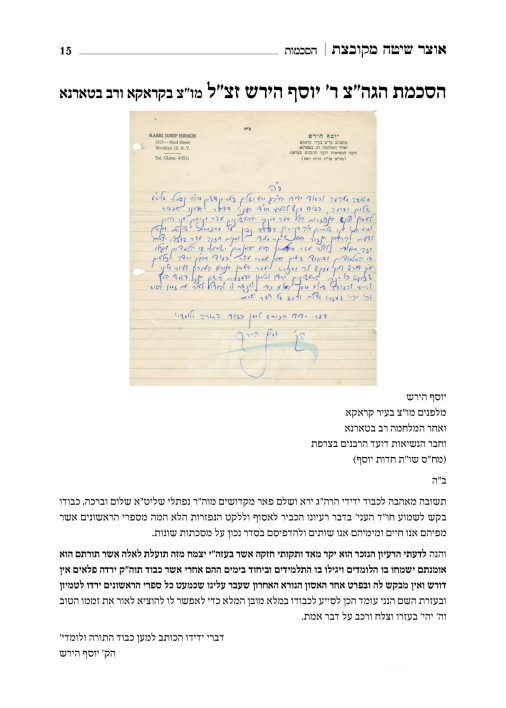 אוצר שיטה מקובצת | הסכמות 15
הסכמת הגה"צ ר' יוסף הירש זצ"ל מו"צ בקראקא ורב בטארנא
RABBI JOSEF HIRSCH
Brooklyn 19, N. Y.
יוסף הירש
ב"ה
יוסף הירש
מלפנים מו"צ בעיר קראקא
ואחר המלחמה רב בטארנא
וחבר הנשיאות דועד הרבנים בצרפת
(מח"ס שו"ת חדות יוסף)
ב"ה
תשובה מאהבה לכבוד ידידי הרה"ג ירא ושלם פאר מקדושים מוה"ר נפתלי שליט"א שלום וברכה, כבודו
בקש לשמוע חו"ד העני' בדבר רעיונו הכביר לאסוף וללקט הנפזרות הלא המה מספרי הראשונים אשר
מפיהם אנו חיים ומימיהם אנו שותים ולהדפיסם בסדר נכון על מסכתות שונות.
והנה לדעתי הרעיון הנזכר הוא יקר מאד ותקותי חזקה אשר בעזה"י יצמח מזה תועלת לאלה אשר תורתם הוא
אומנתם ישמחו בו הלומדים ויגילו בו התלמידים וביחוד בימים ההם אחרי אשר כבוד תוה"ק ירדה פלאים אין
דורש ואין מבקש לה ובפרט אחר האסון הנורא האחרון שעבר עלינו שכמעט כל ספרי הראשונים ירדו לטמיון
ובעזרת השם הנני עומד הכן לסייע לכבודו במלא מובן המלא כדי לאפשר לו להוציא לאור את זממו הטוב
וה' יהי' בעזרו וצלח ורכב על דבר אמת.
דברי ידידו הכותב למען כבוד התורה ולומדי'
הק' יוסף הירש